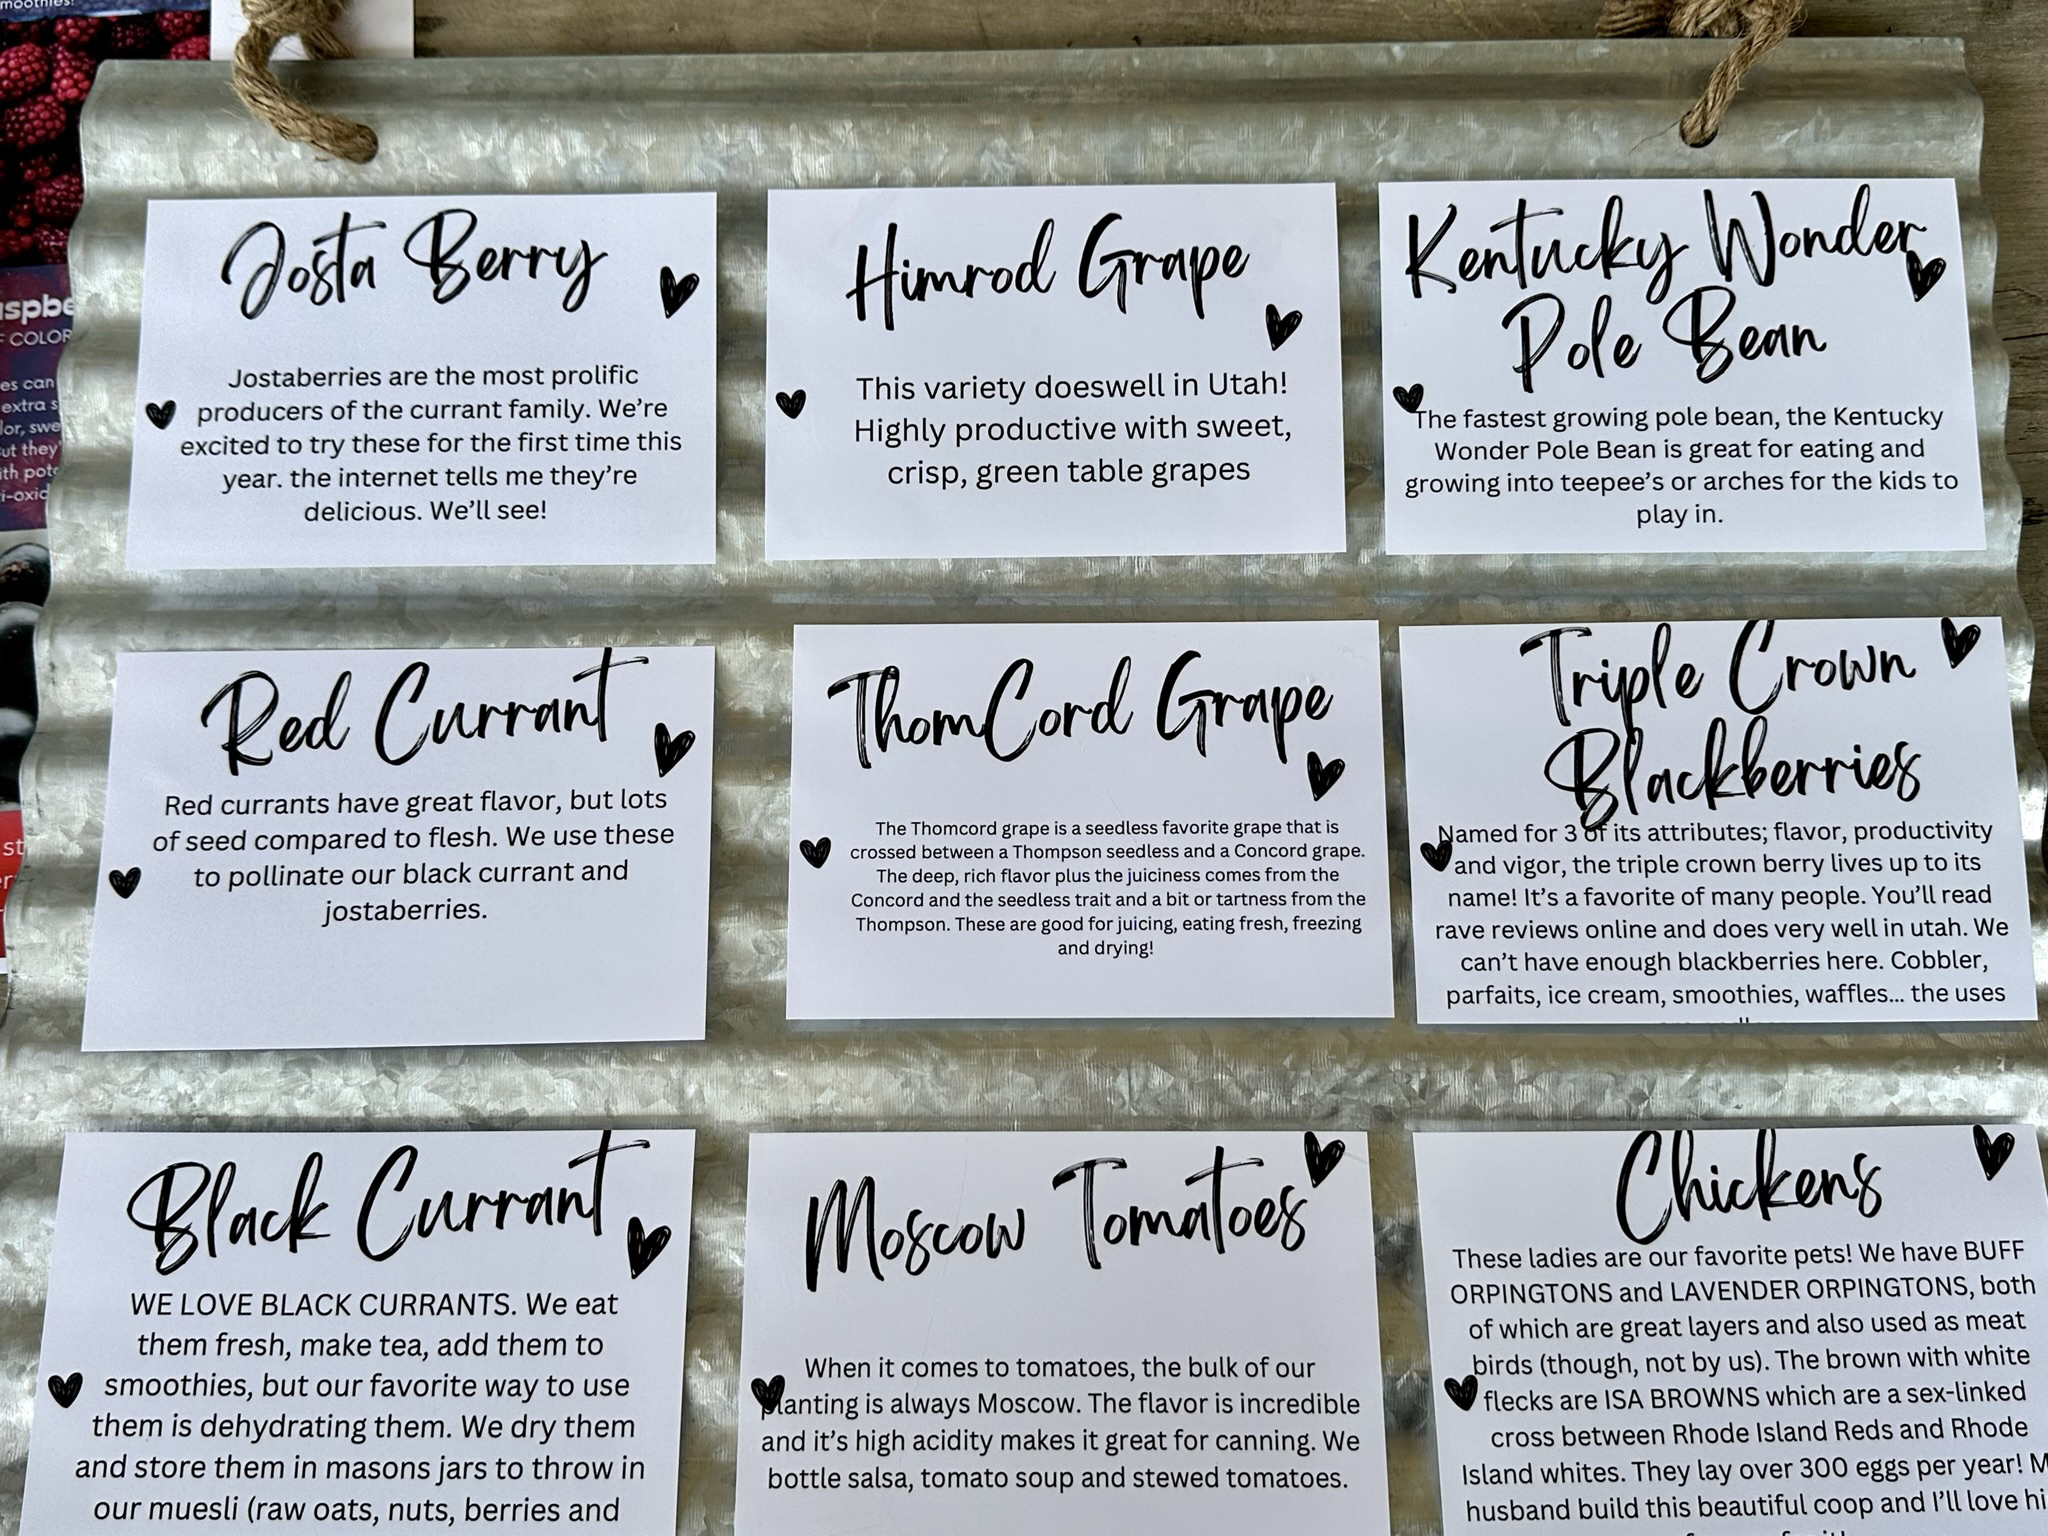 moothies!
aspbe
F COLOR
es can
extra s
lor, swe
ut they'
ith pot
i-oxid
st
er
Josta Berry
Jostaberries are the most prolific
producers of the currant family. We’re
excited to try these for the first time this
year. the internet tells me they’re
delicious. We’ll see!
Himrod Grape
This variety doeswell in Utah!
Highly productive with sweet,
crisp, green table grapes
Kentucky Wonder
Pole Bean
The fastest growing pole bean, the Kentucky
Wonder Pole Bean is great for eating and
growing into teepee’s or arches for the kids to
play in.
Red Currant
Red currants have great flavor, but lots
of seed compared to flesh. We use these
to pollinate our black currant and
jostaberries.
ThomCord Grape
The Thomcord grape is a seedless favorite grape that is
crossed between a Thompson seedless and a Concord grape.
The deep, rich flavor plus the juiciness comes from the
Concord and the seedless trait and a bit or tartness from the
Thompson. These are good for juicing, eating fresh, freezing
and drying!
Triple Crown
Blackberries
Named for 3 of its attributes; flavor, productivity
and vigor, the triple crown berry lives up to its
name! It’s a favorite of many people. You’ll read
rave reviews online and does very well in utah. We
can’t have enough blackberries here. Cobbler,
parfaits, ice cream, smoothies, waffles... the uses
Black Currant
WE LOVE BLACK CURRANTS. We eat
them fresh, make tea, add them to
smoothies, but our favorite way to use
them is dehydrating them. We dry them
and store them in masons jars to throw in
our muesli (raw oats, nuts, berries and
Moscow Tomatoes
When it comes to tomatoes, the bulk of our
planting is always Moscow. The flavor is incredible
and it’s high acidity makes it great for canning. We
bottle salsa, tomato soup and stewed tomatoes.
Chickens
These ladies are our favorite pets! We have BUFF
ORPINGTONS and LAVENDER ORPINGTONS, both
of which are great layers and also used as meat
birds (though, not by us). The brown with white
flecks are ISA BROWNS which are a sex-linked
cross between Rhode Island Reds and Rhode
Island whites. They lay over 300 eggs per year! M
husband build this beautiful coop and I’ll love hi